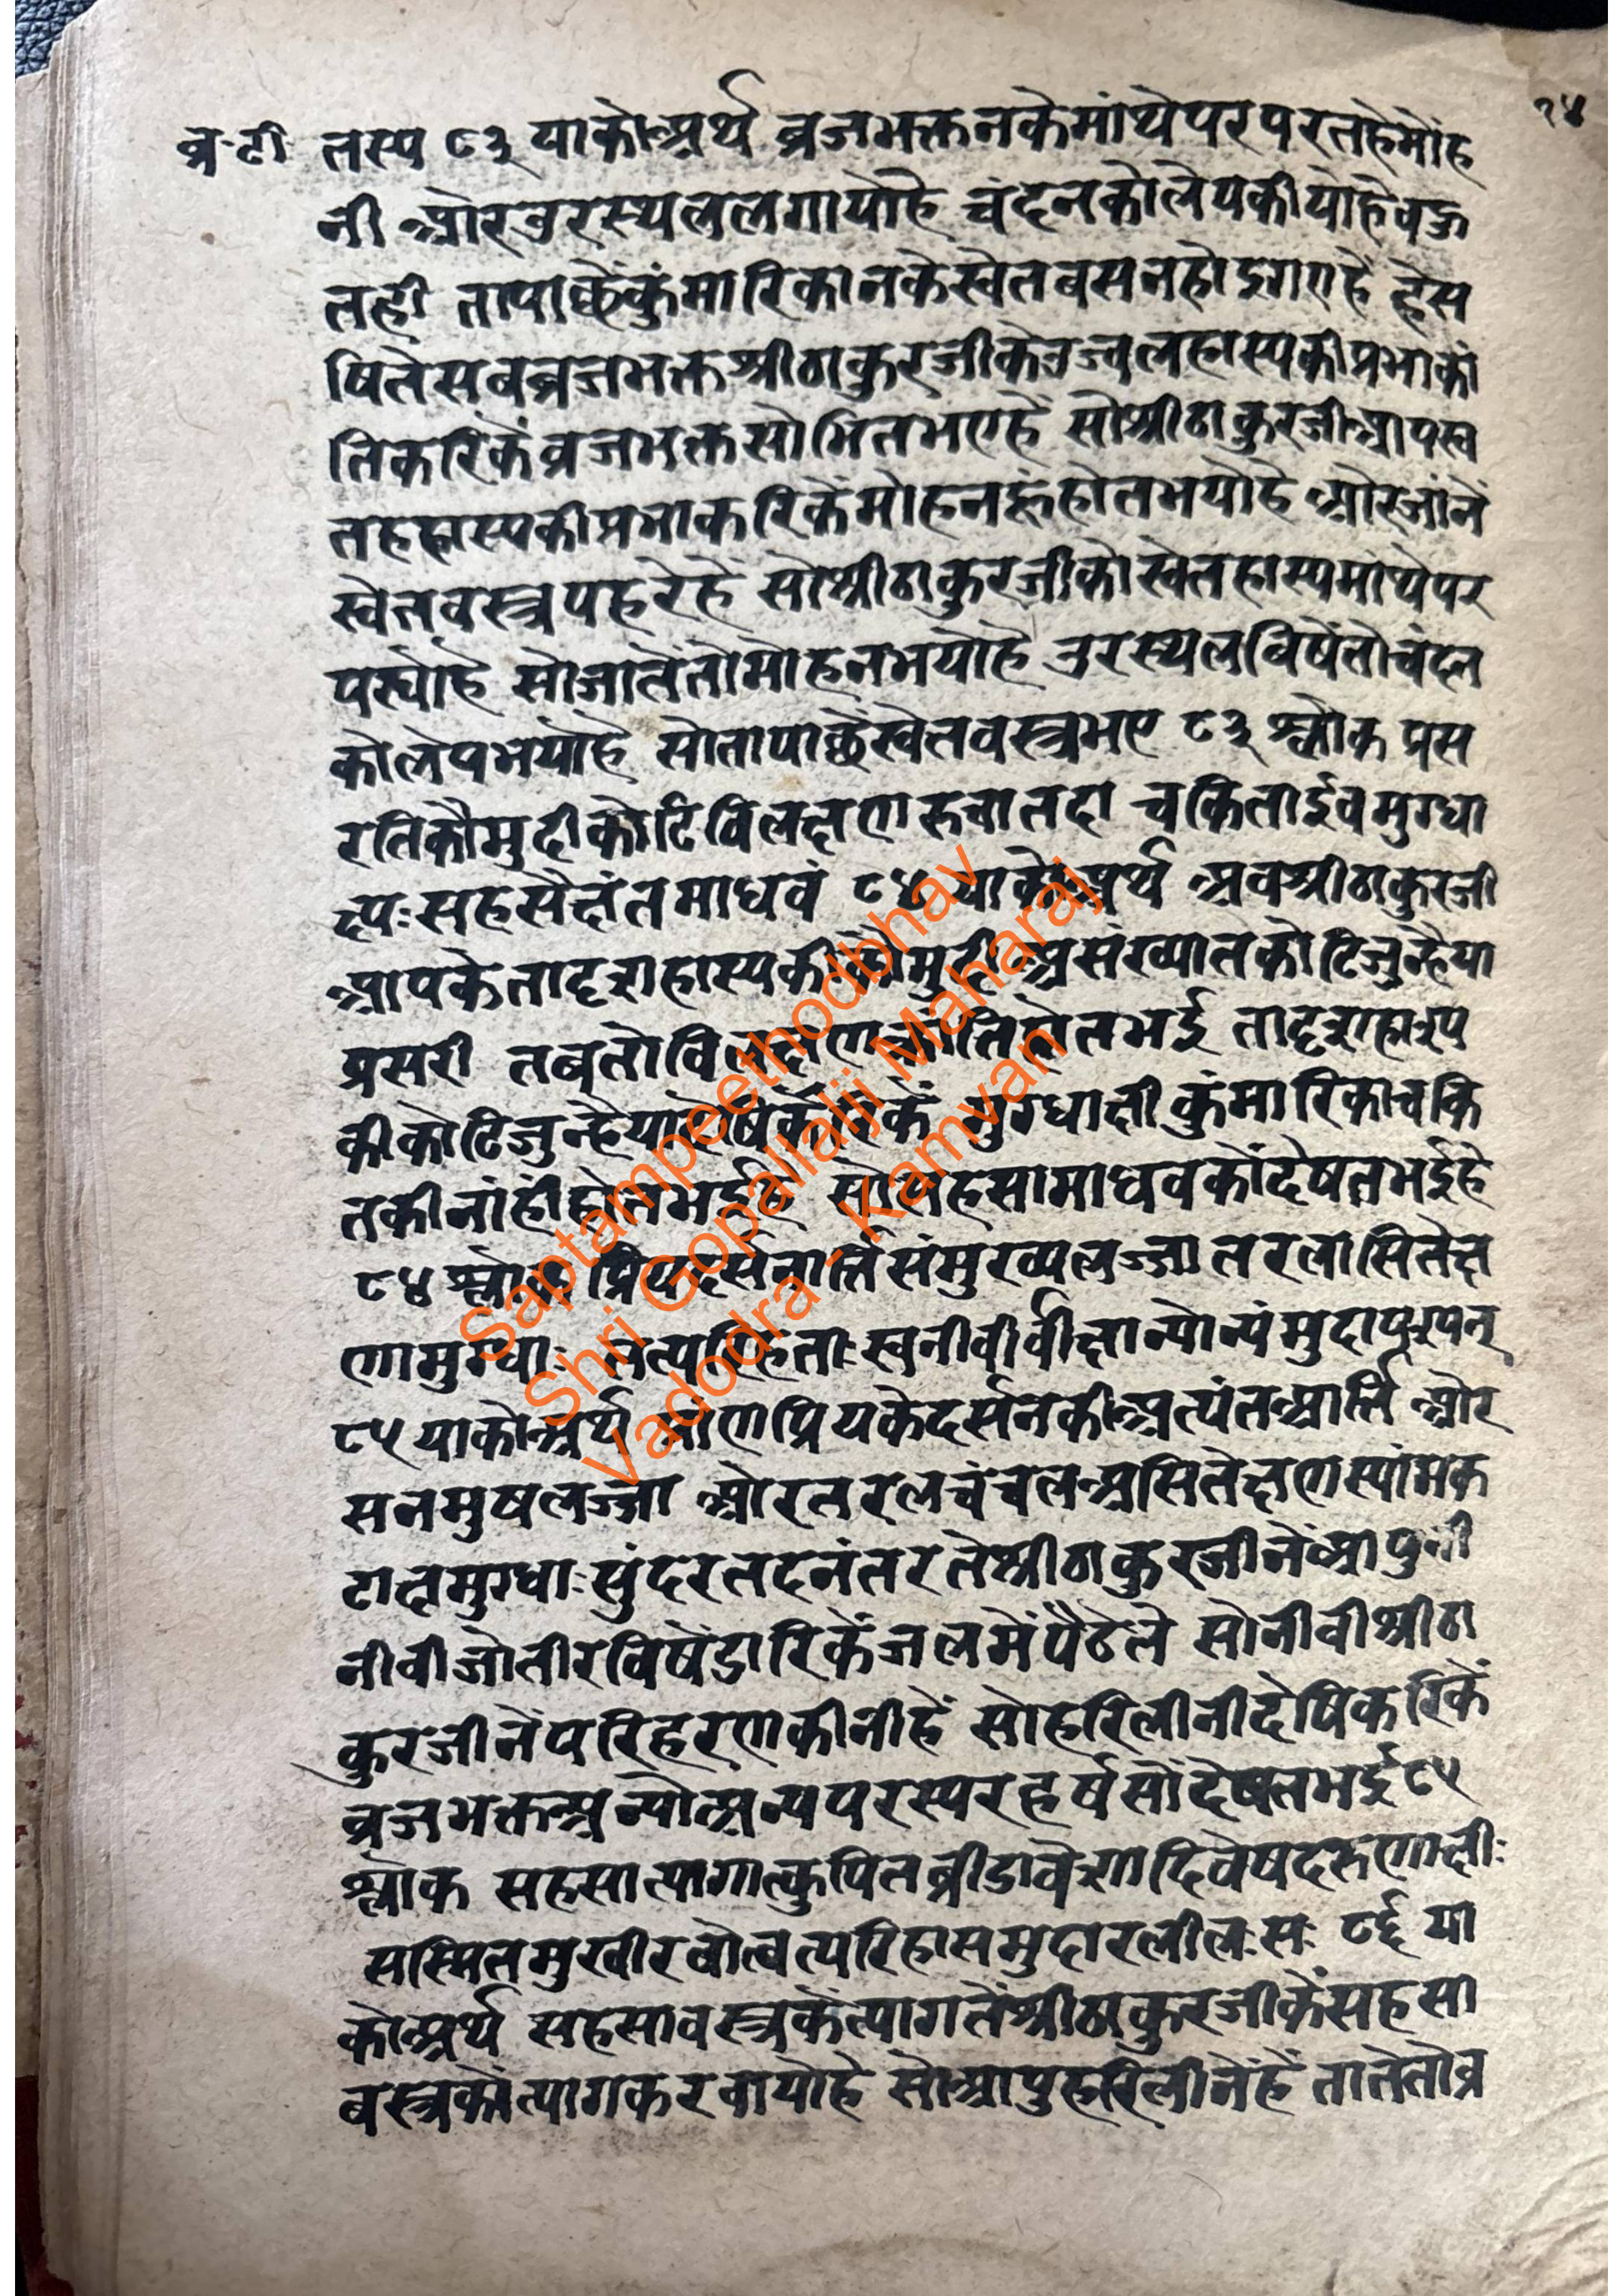 २४
व्र·टी तस्य ८३ याकोअर्थ व्रजभक्तनकेमांथेपरपरतहेमोंह
नी ओरउरस्थललगायोहै चंदनकोलेपकीयोहैवऊ
तही तापाछेंकुंमारिकानकेस्वेतबसनहोइगएहें हेस
षितेसबव्रजभक्तश्रीठाकुरजीकेउज्वलहास्यकीप्रभाकां
तिकरिकेंव्रजभक्तसोभितभएहें सोश्रीठाकुरजीआपस्व
तहहास्यकीप्रभाकरिकेंमोहनहूंहोतभयोहै ओरजांनें
स्वेतवस्त्रपहरेहें सोश्रीठाकुरजीकोस्वेतहास्यमांथेपर
पर्योहै सोजातेंतोमोहनभयोहै उरस्थलविषेंतोचंदन
कोलेपभयोहै सोतापाछेंस्वेतवस्त्रभए ८३ श्लोक प्रस
रतिकौमुदीकोटिविलक्षणरुचातदा चकिताईवमुग्धा
क्ष्यःसहसैक्षंतमाधवं ८४ याकोअर्थ अवश्रीठाकुरजी
आपकेतादृशहास्यकीकौमुदीअसंख्यातकोटिजुन्हैया
प्रसरी तबतोविलक्षणकांतिहोतभई तादृशहास्य
कीकोटिजुन्हैयादेषिकरिकें मुग्धाक्षीकुंमारिकाचकि
तकीनांहींहोतभईहै सोसहसामाधवकोंदेषतभईहै
८४ श्लोक प्रियदर्सनार्तिसंमुख्यलज्जातरलासितेक्ष
णामुग्धाः तत्परिहृताःस्वनीवीर्वीक्षान्योन्यंमुदापश्यन्
८५ याकोअर्थ प्रांणप्रियकेदर्सनकीअत्यंतआर्ति ओर
सनमुषलज्जा ओरतरलचंचलअसितेक्षणस्यांमक
टाक्षमुग्धाःसुंदरतदनंतरतेश्रीठाकुरजीनेंआपुनी
नीवीजोतीरविषेंडारिकेंजलमेंपैठेते सोनीवीश्रीठा
कुरजीनेंपरिहरणकीनीहें सोहरिलीनीदेषिकरिकें
व्रजभक्तअन्योअन्यपरस्परहर्षसोंदेषतभई ८५
श्लोक सहसात्यागात्कुपितव्रीडावेशादिवेषदरुणाक्षीः
सस्मितमुखीरवोत्वत्परिहासमुदारलीलःसः ८६ या
कोअर्थ सहसावस्त्रकेंत्यागतेंश्रीठाकुरजीकेंसहसा
बस्त्रकोंत्यागकरवायोहै सोआपुहरिलीनेंहें तातेतोव्र
Saptampeethodbhav
Shri Gopallalji Maharaj
Vadodra - Kamvan